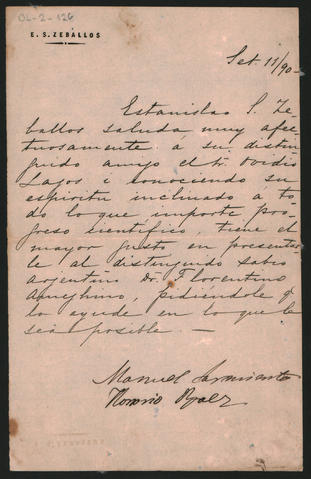 OL-2-126
E. S. ZEBALLOS
Set 11/90-
Estanislao S. Ze-
ballos saluda muy afec-
tuosamente á su distin-
guido amigo el Sr. Ovidio
Lagos i conociendo su
espíritu inclinado á to-
do lo que importe pro-
greso científico, tiene el
mayor gusto en presentar-
le al distinguido sabio
argentino dr. Florentino
Ameghino, pidiéndole q
lo ayude en lo que le
sea posible —
Manuel Sarmiento